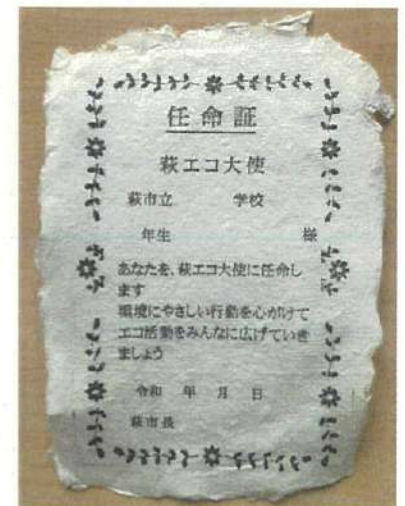 任命証
萩エコ大使
萩市立　　　学校
年生　　　　　　様
あなたを、萩エコ大使に任命し
ます
環境にやさしい行動を心がけて
エコ活動をみんなに広げていき
ましょう
令和　年　月　日
萩市長